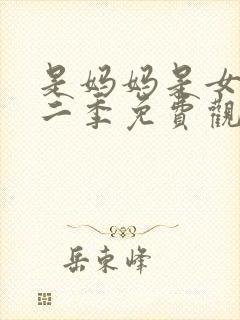 是妈妈是女
二季免費觀
岳東峰